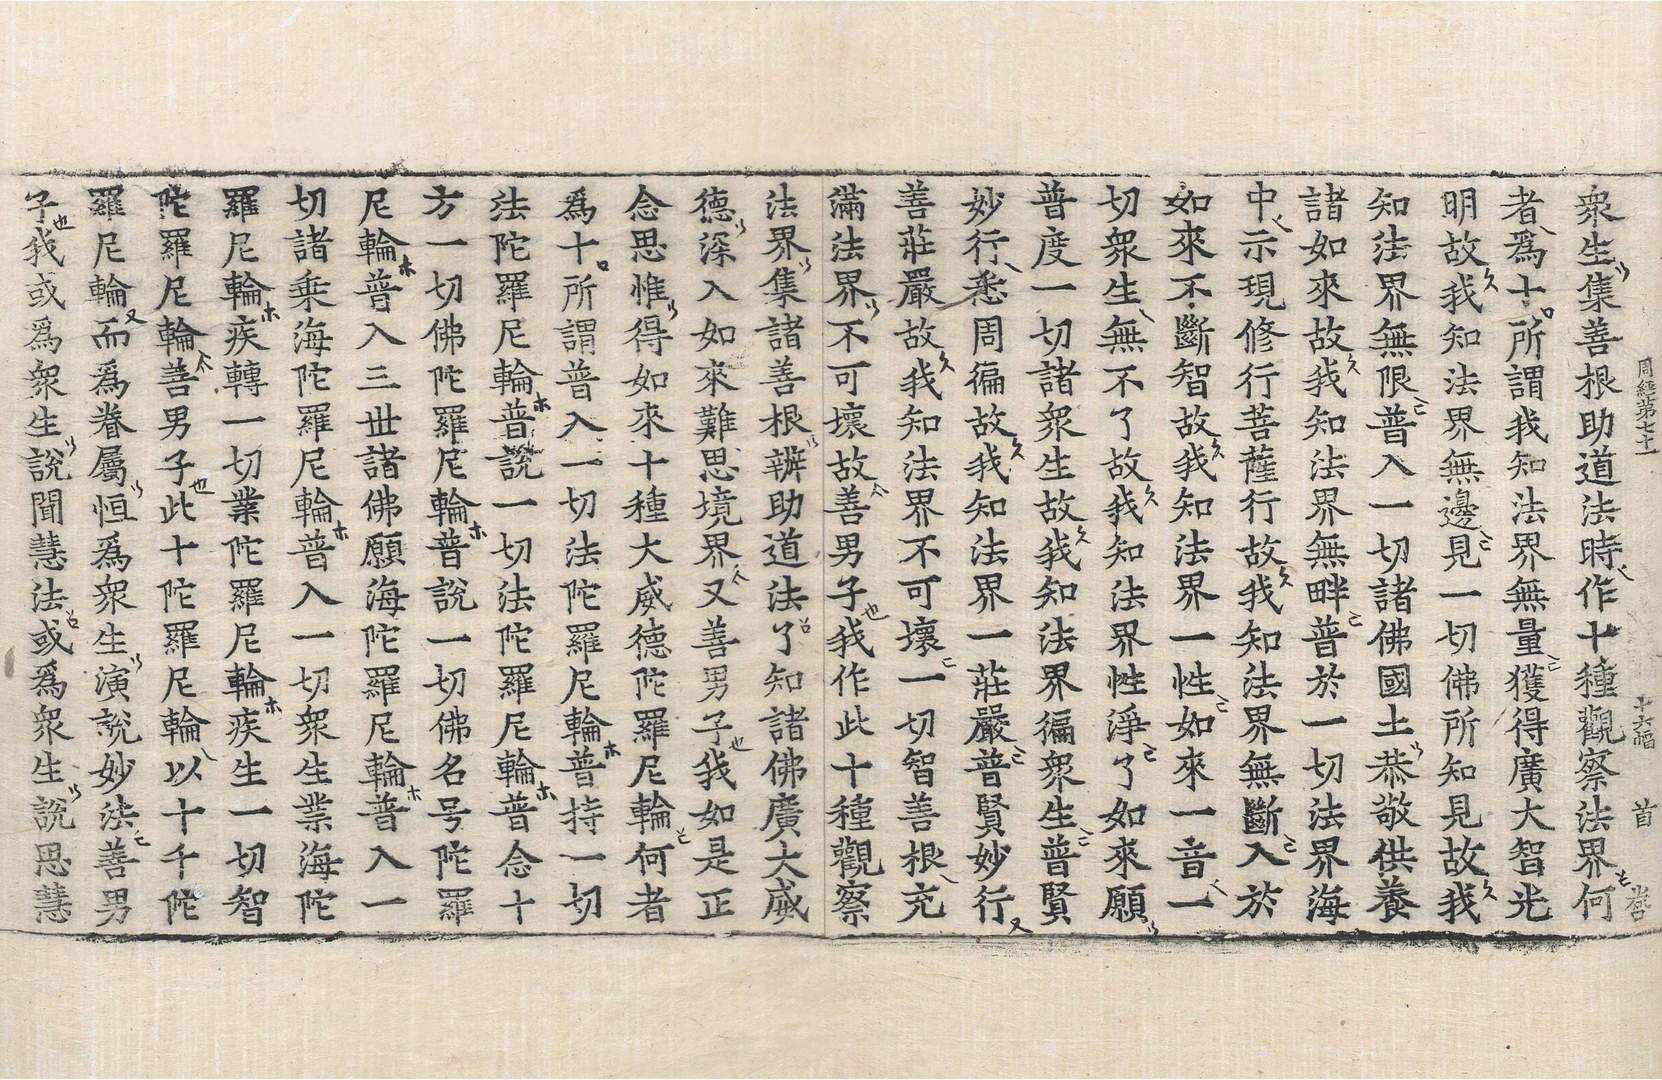 周經第七十一 十六幅 首
衆生集善根助道法時作十種觀察法界何
者爲十所謂我知法界無量獲得廣大智光
明故我知法界無邊見一切佛所知見故我
知法界無限普入一切諸佛國土恭敬供養
諸如來故我知法界無畔普於一切法界海
中示現修行菩薩行故我知法界無斷入於
如來不斷智故我知法界一性如來一音一
切衆生無不了故我知法界性淨了如來願
普度一切諸衆生故我知法界徧衆生普賢
妙行悉周徧故我知法界一莊嚴普賢妙行
善莊嚴故我知法界不可壞一切智善根充
滿法界不可壞故善男子我作此十種觀察
法界集諸善根辨助道法了知諸佛廣大威
德深入如來難思境界又善男子我如是正
念思惟得如來十種大威德陀羅尼輪何者
爲十所謂普入一切法陀羅尼輪普持一切
法陀羅尼輪普說一切法陀羅尼輪普念十
方一切佛陀羅尼輪普說一切佛名号陀羅
尼輪普入三世諸佛願海陀羅尼輪普入一
切諸乗海陀羅尼輪普入一切衆生業海陀
羅尼輪疾轉一切業陀羅尼輪疾生一切智
陀羅尼輪善男子此十陀羅尼輪以十千陀
羅尼輪而爲眷屬恒爲衆生演說妙法善男
子我或爲衆生說聞慧法或爲衆生說思慧